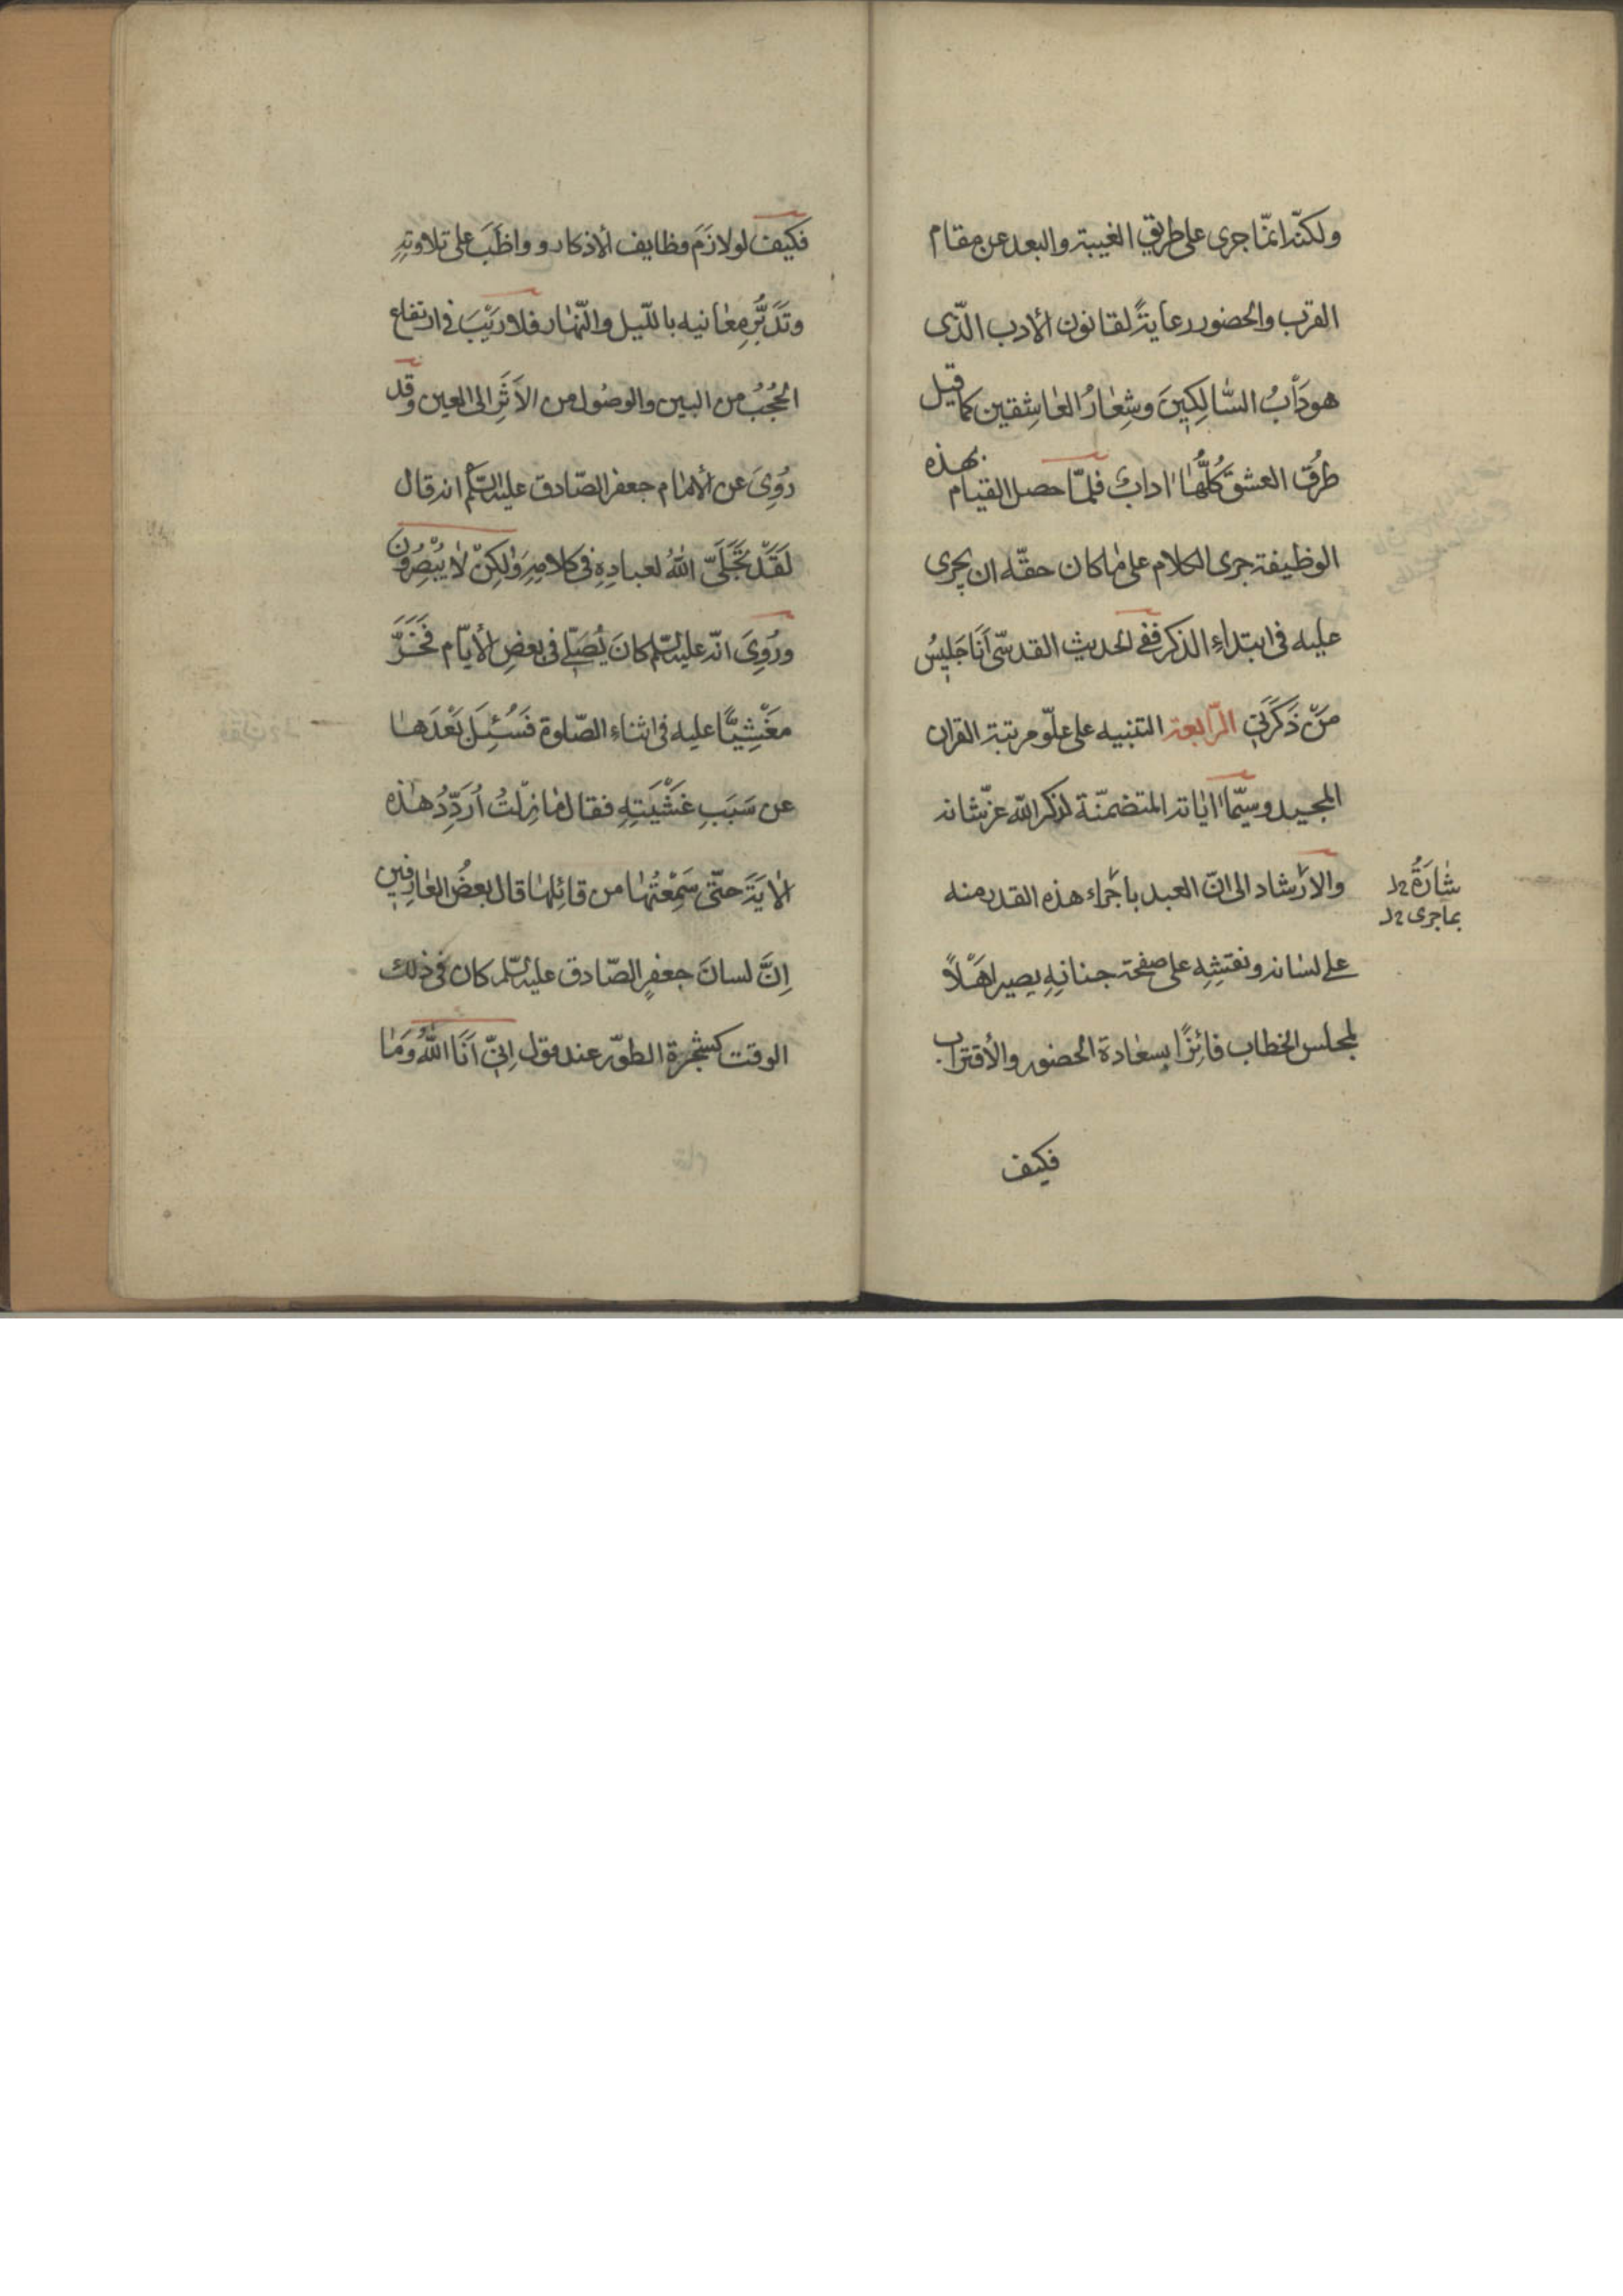 ولكنّه انمّا جرى على طريق الغيبة والبعد عن مقام
القرب والحضور رعايةً لقانون الأدب الّذى
هو دَأبُ السّالِكِينَ وشِعارُ العاشِقين كما قيل
طرُقُ العشق كُلُّها اداب فلمّا حصل القيام بهذه
الوظيفة جرى الكلام على ما كان حقّه ان يجرى
عليه فى ابتداءِ الذكر ففى الحديث القدسّى اَنَا جَليسُ
مَنْ ذَكَرَنى الرّابعة التنبيه على علّو مرتبة القران
المجيد وسيّما اياته المتضمنّة لذكر الله عزّ شانه
والأرشاد الى انّ العبد باجراء هذه القدر منه
شارَةُ
بماجرى
على لسانه ونقشِهِ على صفحة جنانِهِ يصير اهْلاً
لمجلس الخطاب فائزًا بسعادة الحضور والأقتراب
فكيف
فكيف لو لازَمَ وظايف الأذكار وواظَبَ على تلاوتِهِ
وتَدَبُّرِ معانيه بالليل والنّهار فلا رَيْبَ فى ارتفاع
الحُجُبُ من البين والوصُول من الاَثَرِ الى العين وقد
رُوِىَ عن الأمام جعفر الصّادق عليه السّلم انه قال
لَقَدْ تَجَلَّى اللهُ لعبادِهِ فى كلامِهِ وَلكِنْ لا يُبْصِرُون
ورُوِىَ انّه عليه السّلم كانَ يُصَلّى فى بعضِ الأيّام فَخَرَّ
مغْشِيًّا عليه فى اثناءِ الصّلوة فَسُئِلَ بَعْدَها
عن سَبَبِ غَشْيَتِهِ فقال ما زِلْتُ اُرَدِّدُ هذه
الايَةَ حتّى سَمِعْتُها من قائِلها قال بعضُ العارفين
اِنَّ لسانَ جعفرِ الصّادق عليه السّلم كان فى ذلك
الوقت كشجرة الطوّر عند قول اِنىّ اَنَا اللهُ وَمَا